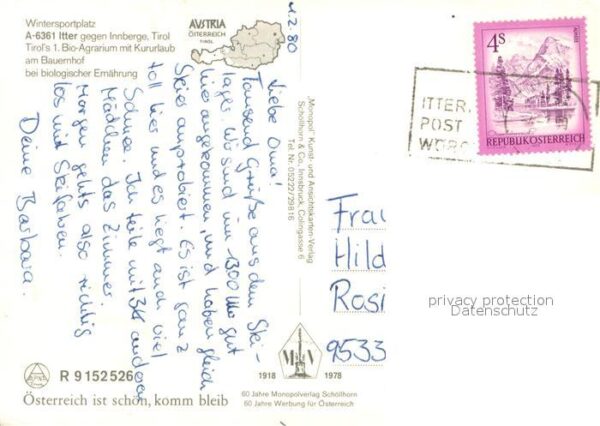 Wintersportplatz
A-6361 Itter gegen Innberge, Tirol
Tirol's 1. Bio-Agrarium mit Kururlaub
am Bauernhof
bei biologischer Ernährung
AUSTRIA
ÖSTERREICH
TIROL
2.80
Liebe Oma!
Tausend Grüße aus dem Ski-
lager. Wir sind um 1300 Uhr gut
hier angekommen, und haben gleich
Skier ausprobiert. Es ist ganz
toll hier und es liegt auch viel
Schnee. Ich teile mit 3 anderen
Mädchen das Zimmer.
Morgen gehts also richtig
los mit Skifahren.
Deine Barbara.
"Monopol" Kunst- und Ansichtskarten-Verlag
Schöllhorn & Co., Innsbruck, Colingasse 6
Tel. Nr. 05222/29816
4S
REPUBLIK ÖSTERREICH
ITTER,
POST
WÖRG
Frau
Hild
Rosi
9533
privacy protection
Datenschutz
R 9152526
1918
1978
60 Jahre Monopolverlag Schöllhorn
60 Jahre Werbung für Österreich
Österreich ist schön, komm bleib